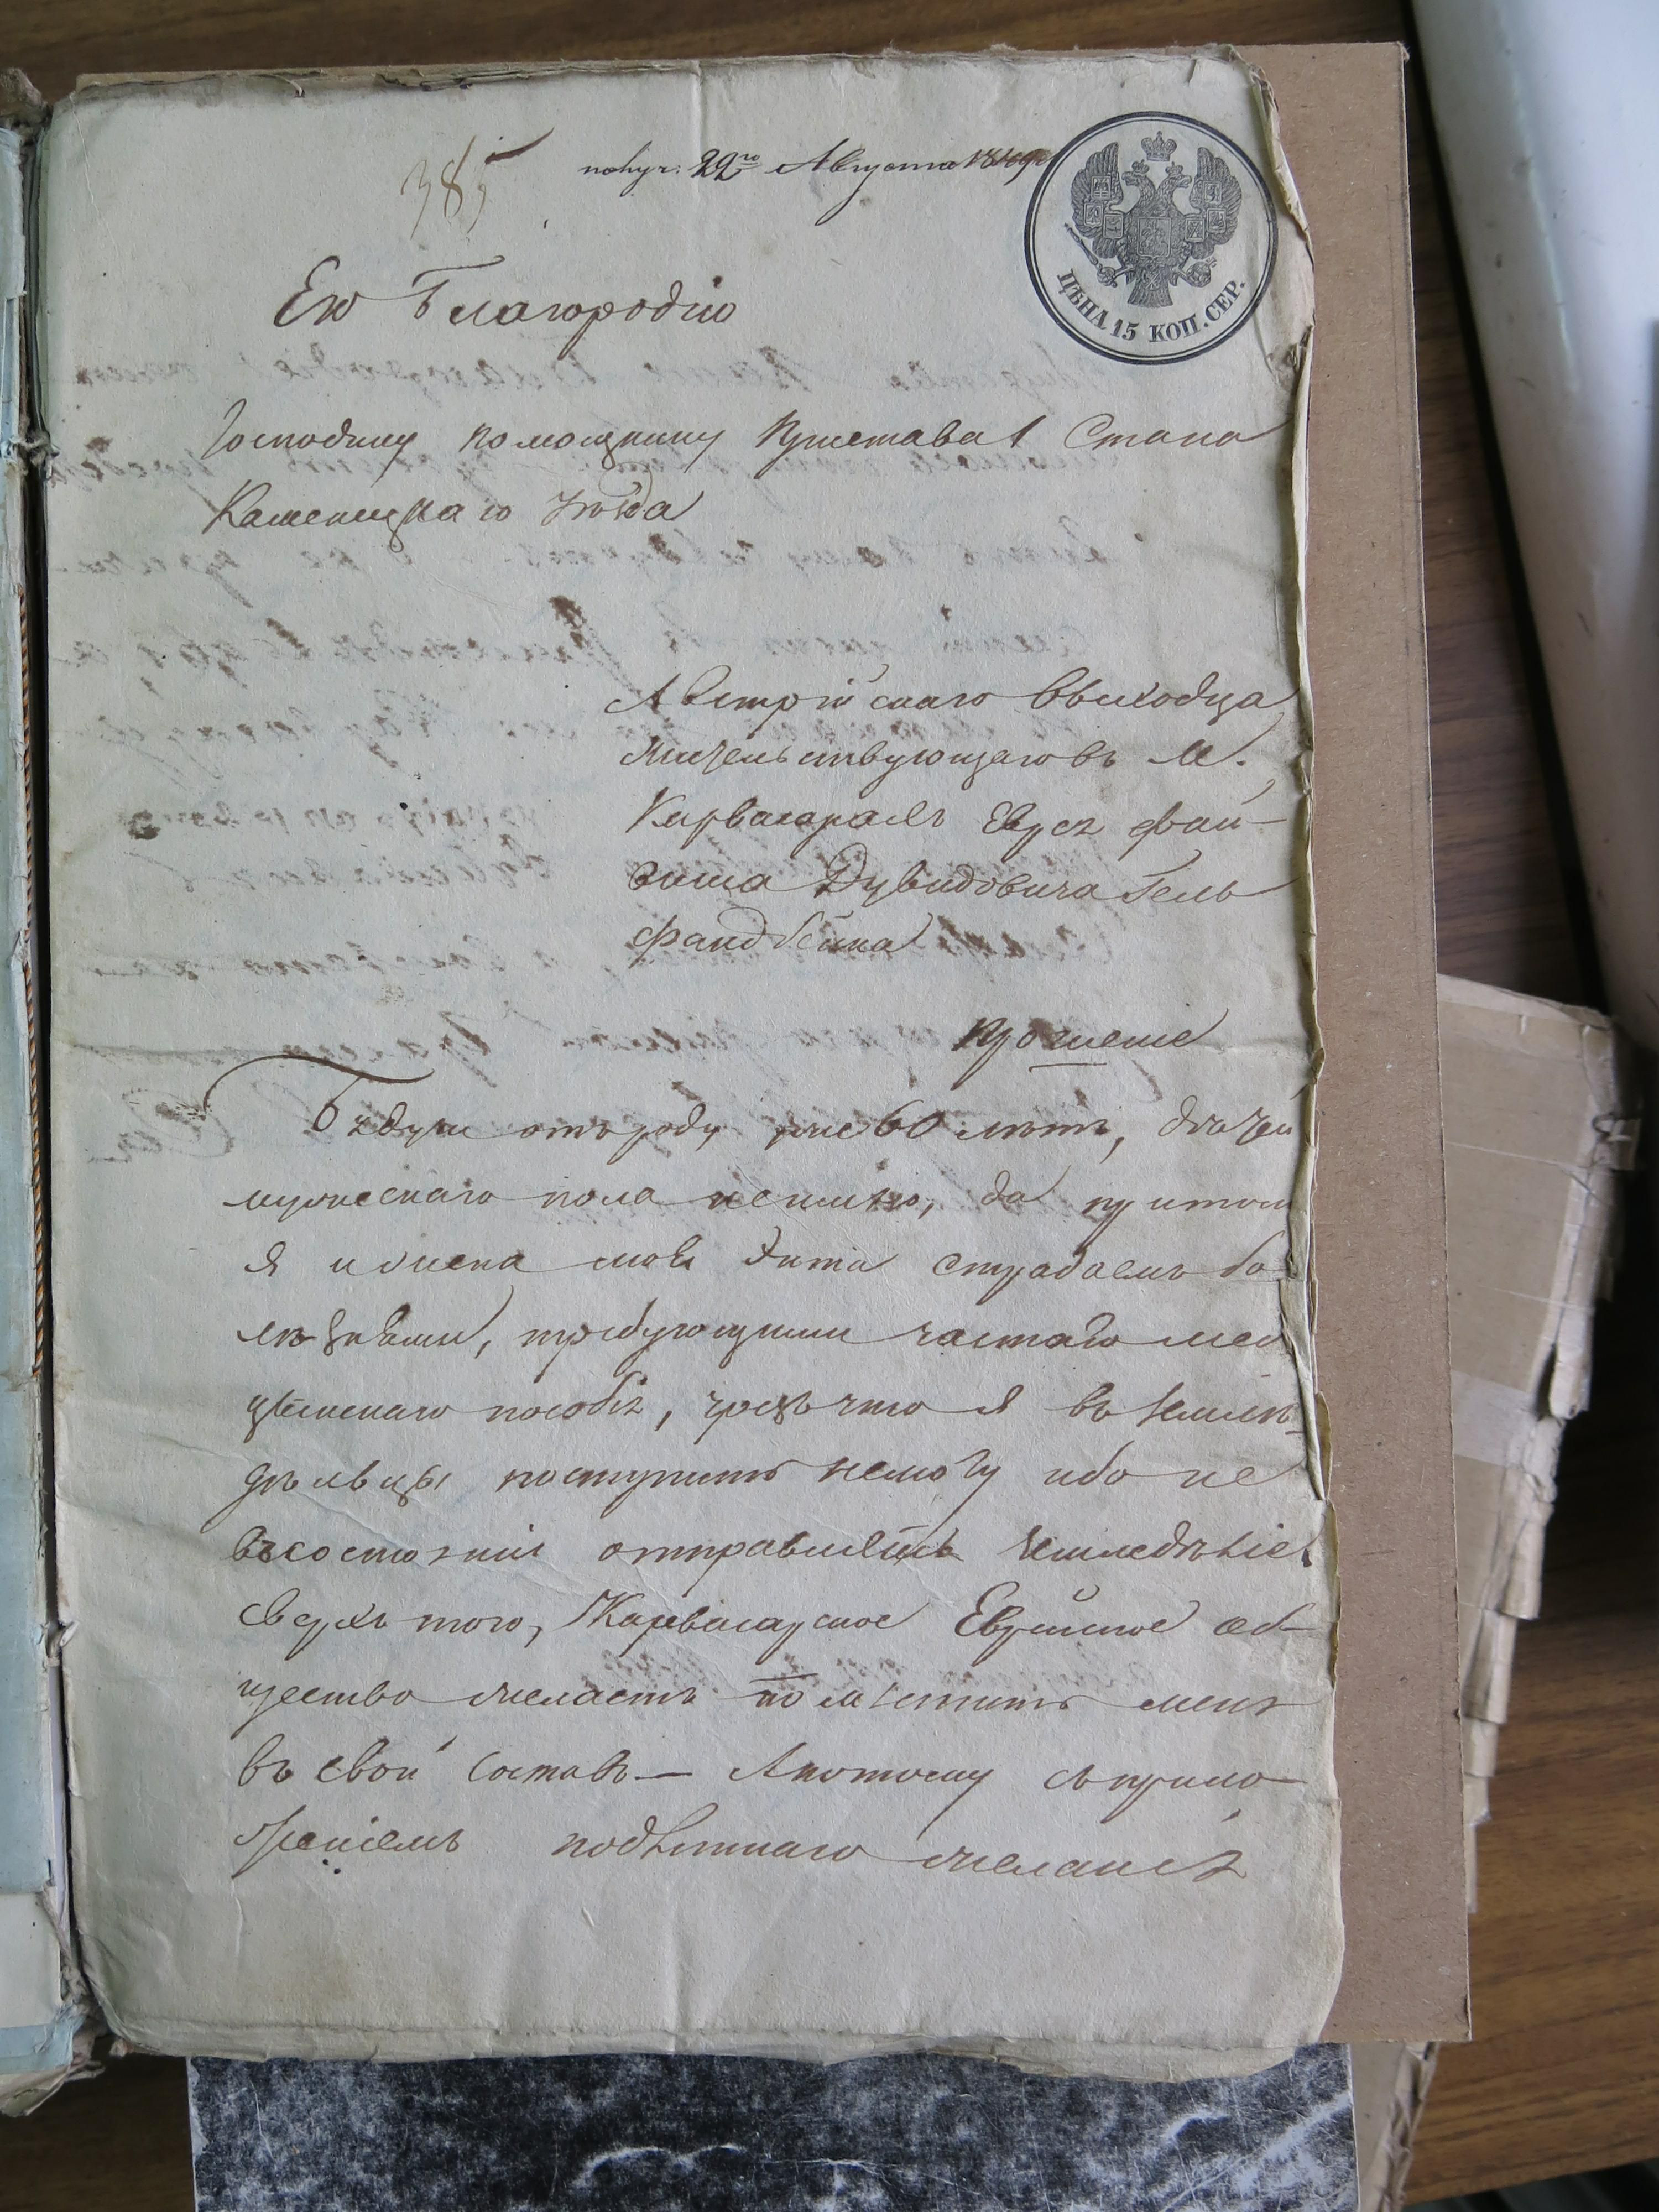 385
получ: 22го Августа
ЦѢНА 15 КОП. СЕР.
Его Благородію
Господину помощнику Пристава 1 Стана
Каменецкаго Уѣзда
Австрійскаго Выходца
жительствующаго въ М.
Карвасарахъ Еврея Фай-
виша Дувидовича Гель
фандбейна
Прошеніе
Будучи отъ роду уже 60 лѣтъ, дѣтей
мужескаго пола неимѣю, да притом
я и жена моя Эита страдаемъ бо-
лѣзнями, требующими частаго мед
цинскаго пособія, чрезъ что я въ Землѣ-
дѣльцы поступить немогу ибо не
въсостояніи отправлять Земледѣліе
Сверхъ того, Карвасарское Еврейское об-
щество желаетъ помѣстить меня
въ свой Составъ — Апотому съ прило-
женіемъ подѣлннаго желанія